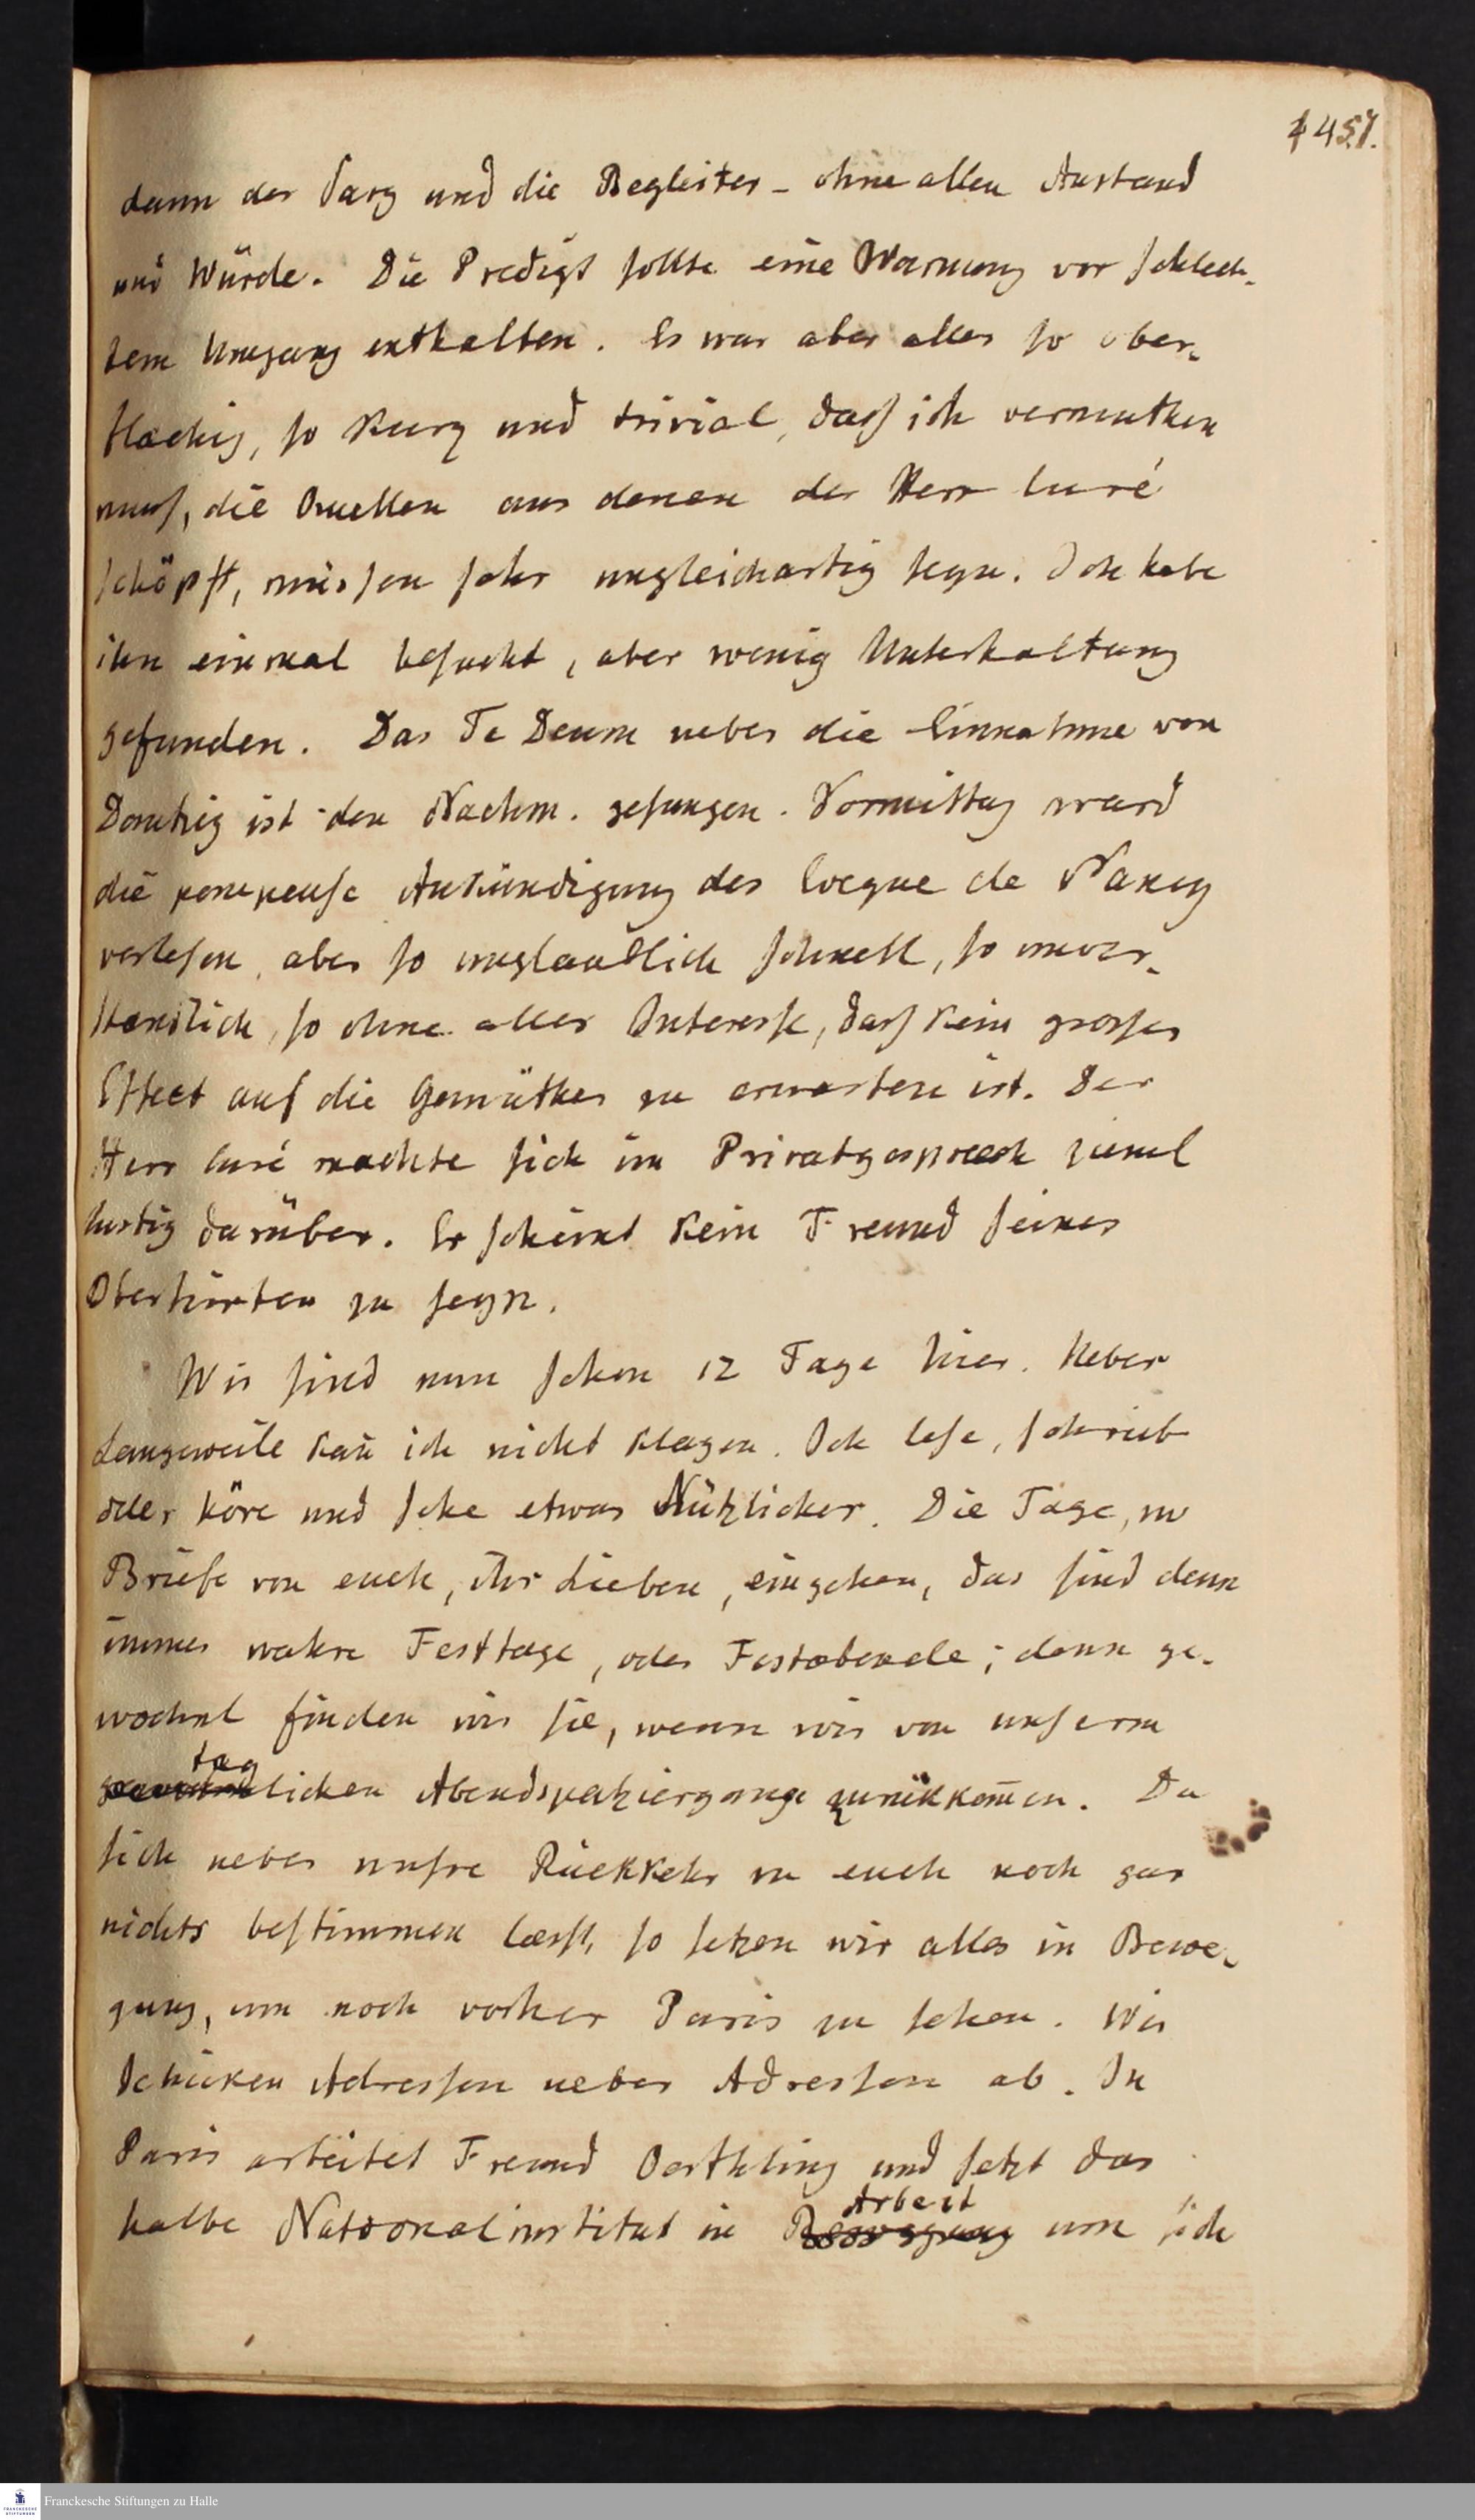 1457.
dann der Sarg und die Begleiter - ohne allen Anstand
und Würde. Die Predigt sollte eine Warnung vor schlech-
tem Umgang enthalten. Es war aber alles so ober-
flächig, so kurz und trivial, dass ich vermuthen
muss, die Quellen aus denen der Herr Curé
schöpft, müssen sehr ungleichartig seyn. Ich habe
ihn einmal besucht, aber wenig Unterhaltung
gefunden. Das Te Deum ueber die Einnahme von
Dantzig ist den Nachm. gesungen. Vormittag ward
die pompeuse Ankündigung des Eveque de Nancy
verlesen, aber so unglaublich schnell, so unver-
staendlich, so ohne alles Interesse, dass kein grosser
Effect auf die Gemüther zu erwarten ist. Der
Herr Curé machte sich im Privatgespraech zieml
lustig darüber. Er scheint kein Freund seines
Oberhirten zu seyn.
Wir sind nun schon 12 Tage hier. Ueber
Langeweile kan̄ ich nicht klagen. Ich lese, schreib
oder höre und sehe etwas Nützliches. Die Tage, wo
Briefe von euch, ihr Lieben, eingehen, das sind denn
immer wahre Festtage, oder Festabende; denn ge-
wöchnl finden wir sie, wenn wir von unserm
tag
lichen Abendspatziergange zurükkom̄en. Da
sich ueber unsre Rückkehr zu euch noch gar
nichts bestimmen laesst, so setzen wir alles in Bewe-
gung, um noch vorher Paris zu sehen. Wir
schicken Adressen ueber Adressen ab. In
Paris arbeitet Freund Oerthling und setzt das
Arbeit
halbe Nationalinstitut in Bewegung um sich
Franckesche Stiftungen zu Halle